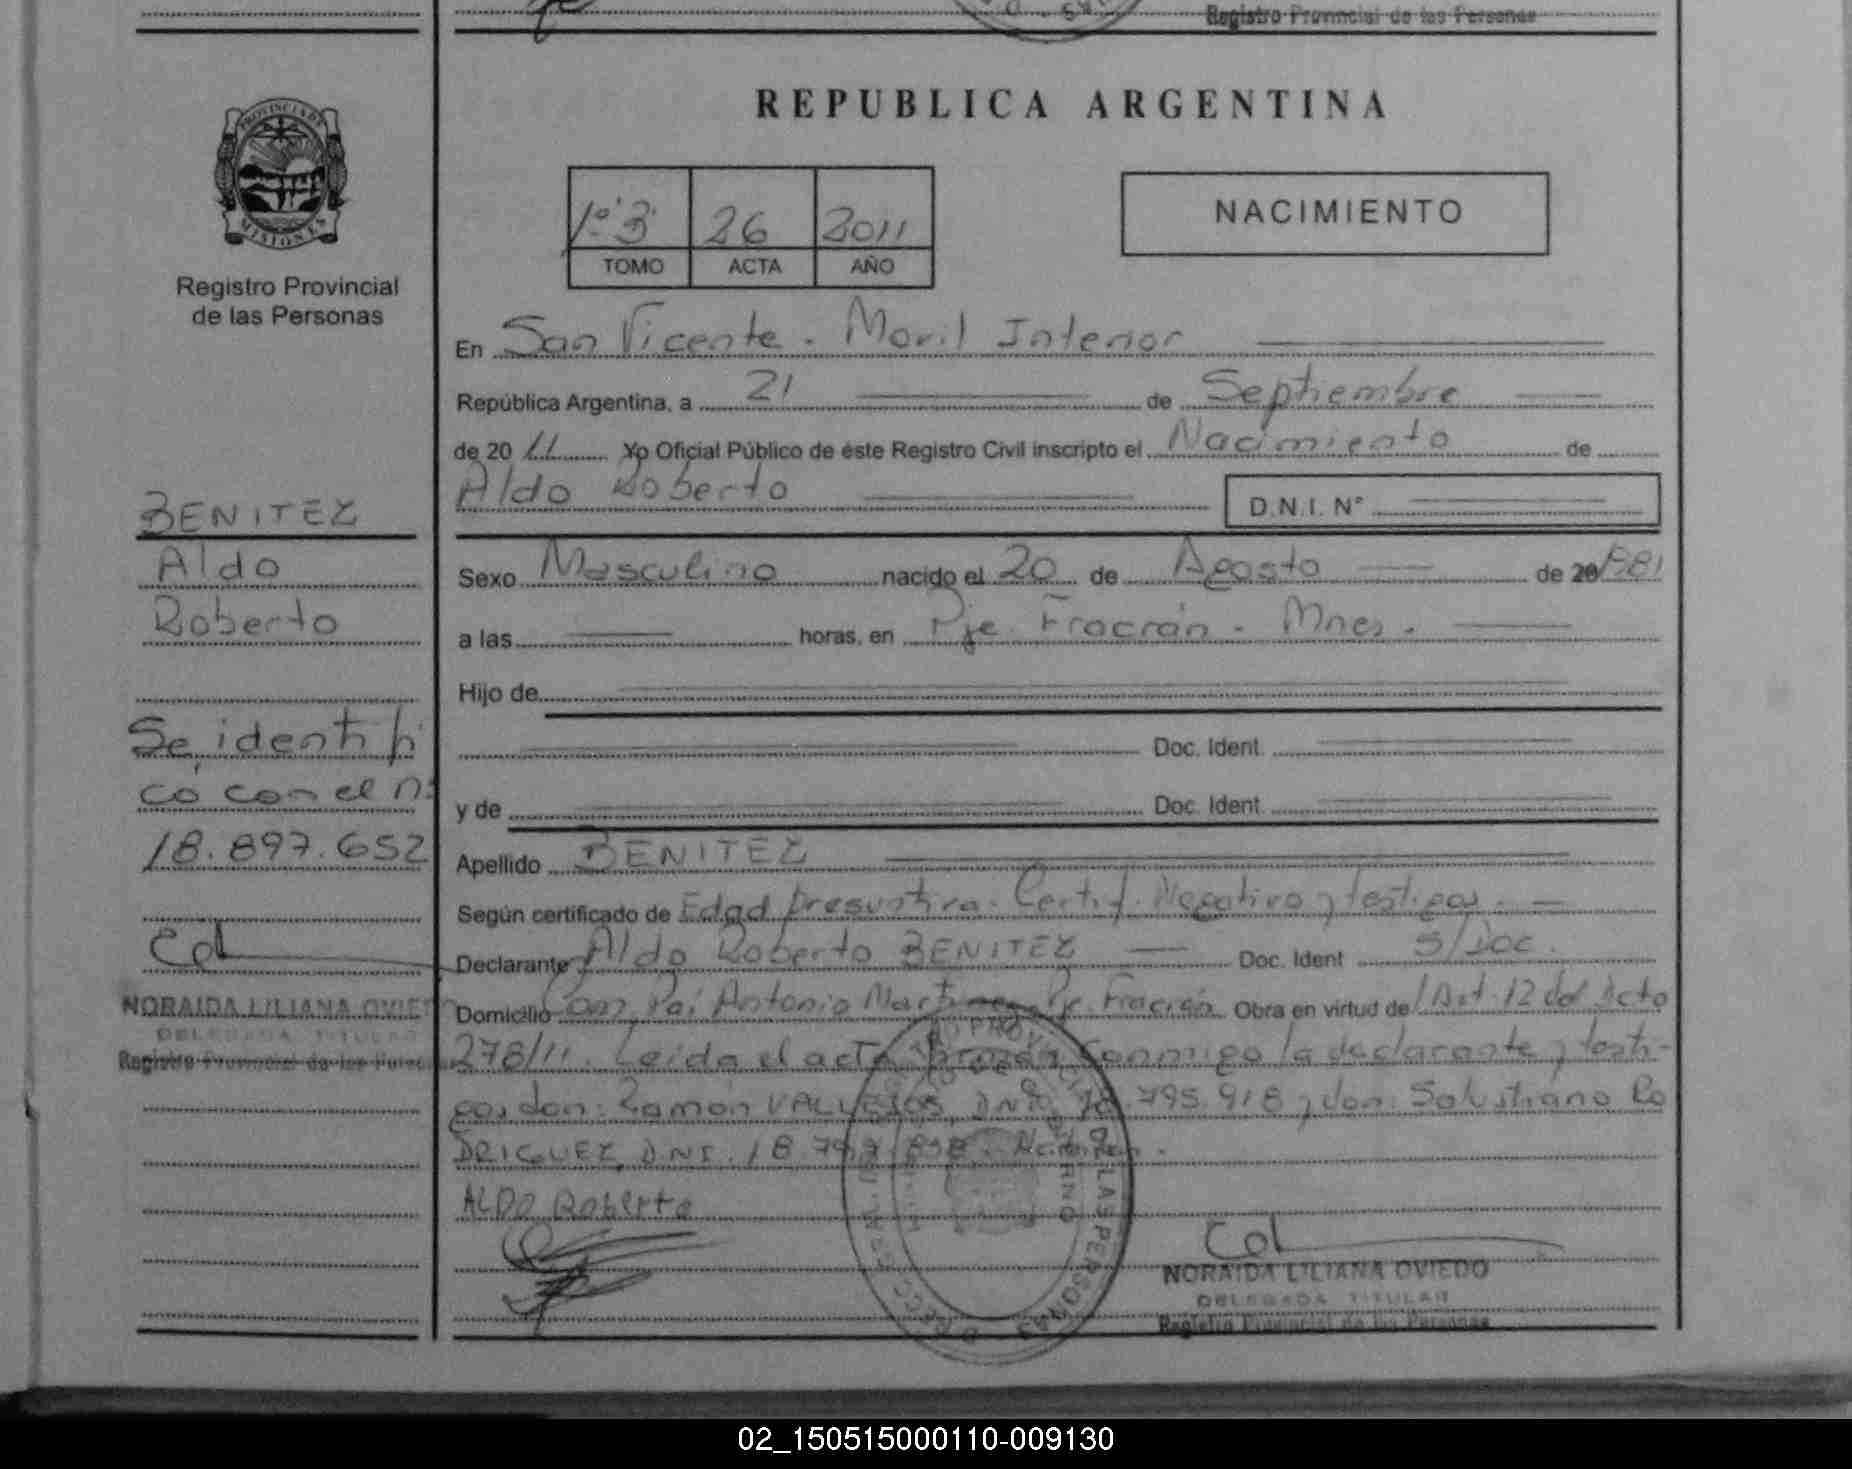 Registro Provincial de las Personas
PROVINCIA DE
MISIONES
Registro Provincial
de las Personas
REPUBLICA ARGENTINA
1º 3 26 2011
TOMO ACTA AÑO
NACIMIENTO
En San Vicente - Movil Interior
República Argentina, a 21 de Septiembre
de 20 11 Yo Oficial Público de éste Registro Civil inscripto el Nacimiento de
Aldo Roberto D.N.I. N°
Sexo Masculino nacido el 20 de Agosto de 20 1981
a las horas, en Pje. Fracrán - Mnes.
Hijo de
Doc. Ident.
y de Doc. Ident.
Apellido BENITEZ
Según certificado de Edad presuntiva. Certif. Negativo y testigos.
Declarante Aldo Roberto BENITEZ Doc. Ident S/Doc.
Domicilio Paí Antonio Martinez Pje. Fracrán Obra en virtud de Art. 12 del Dcto
278/11. Leida el acta conmigo la declarante y testi-
gos don: Ramon VALLEJOS, DNI. 18.795.918 y don: Salustiano Ro
DRIGUEZ, DNI. 18.
ALDO Roberto
NORAIDA LILIANA OVIEDO
DELEGADA TITULAR
Registro Provincial de las Personas
BENITEZ
Aldo
Roberto
Se identifi
có con el nº
18.897.652
NORAIDA LILIANA OVIE
DELEGADA TITULAR
Registro Provincial de las Perso
02_150515000110-009130